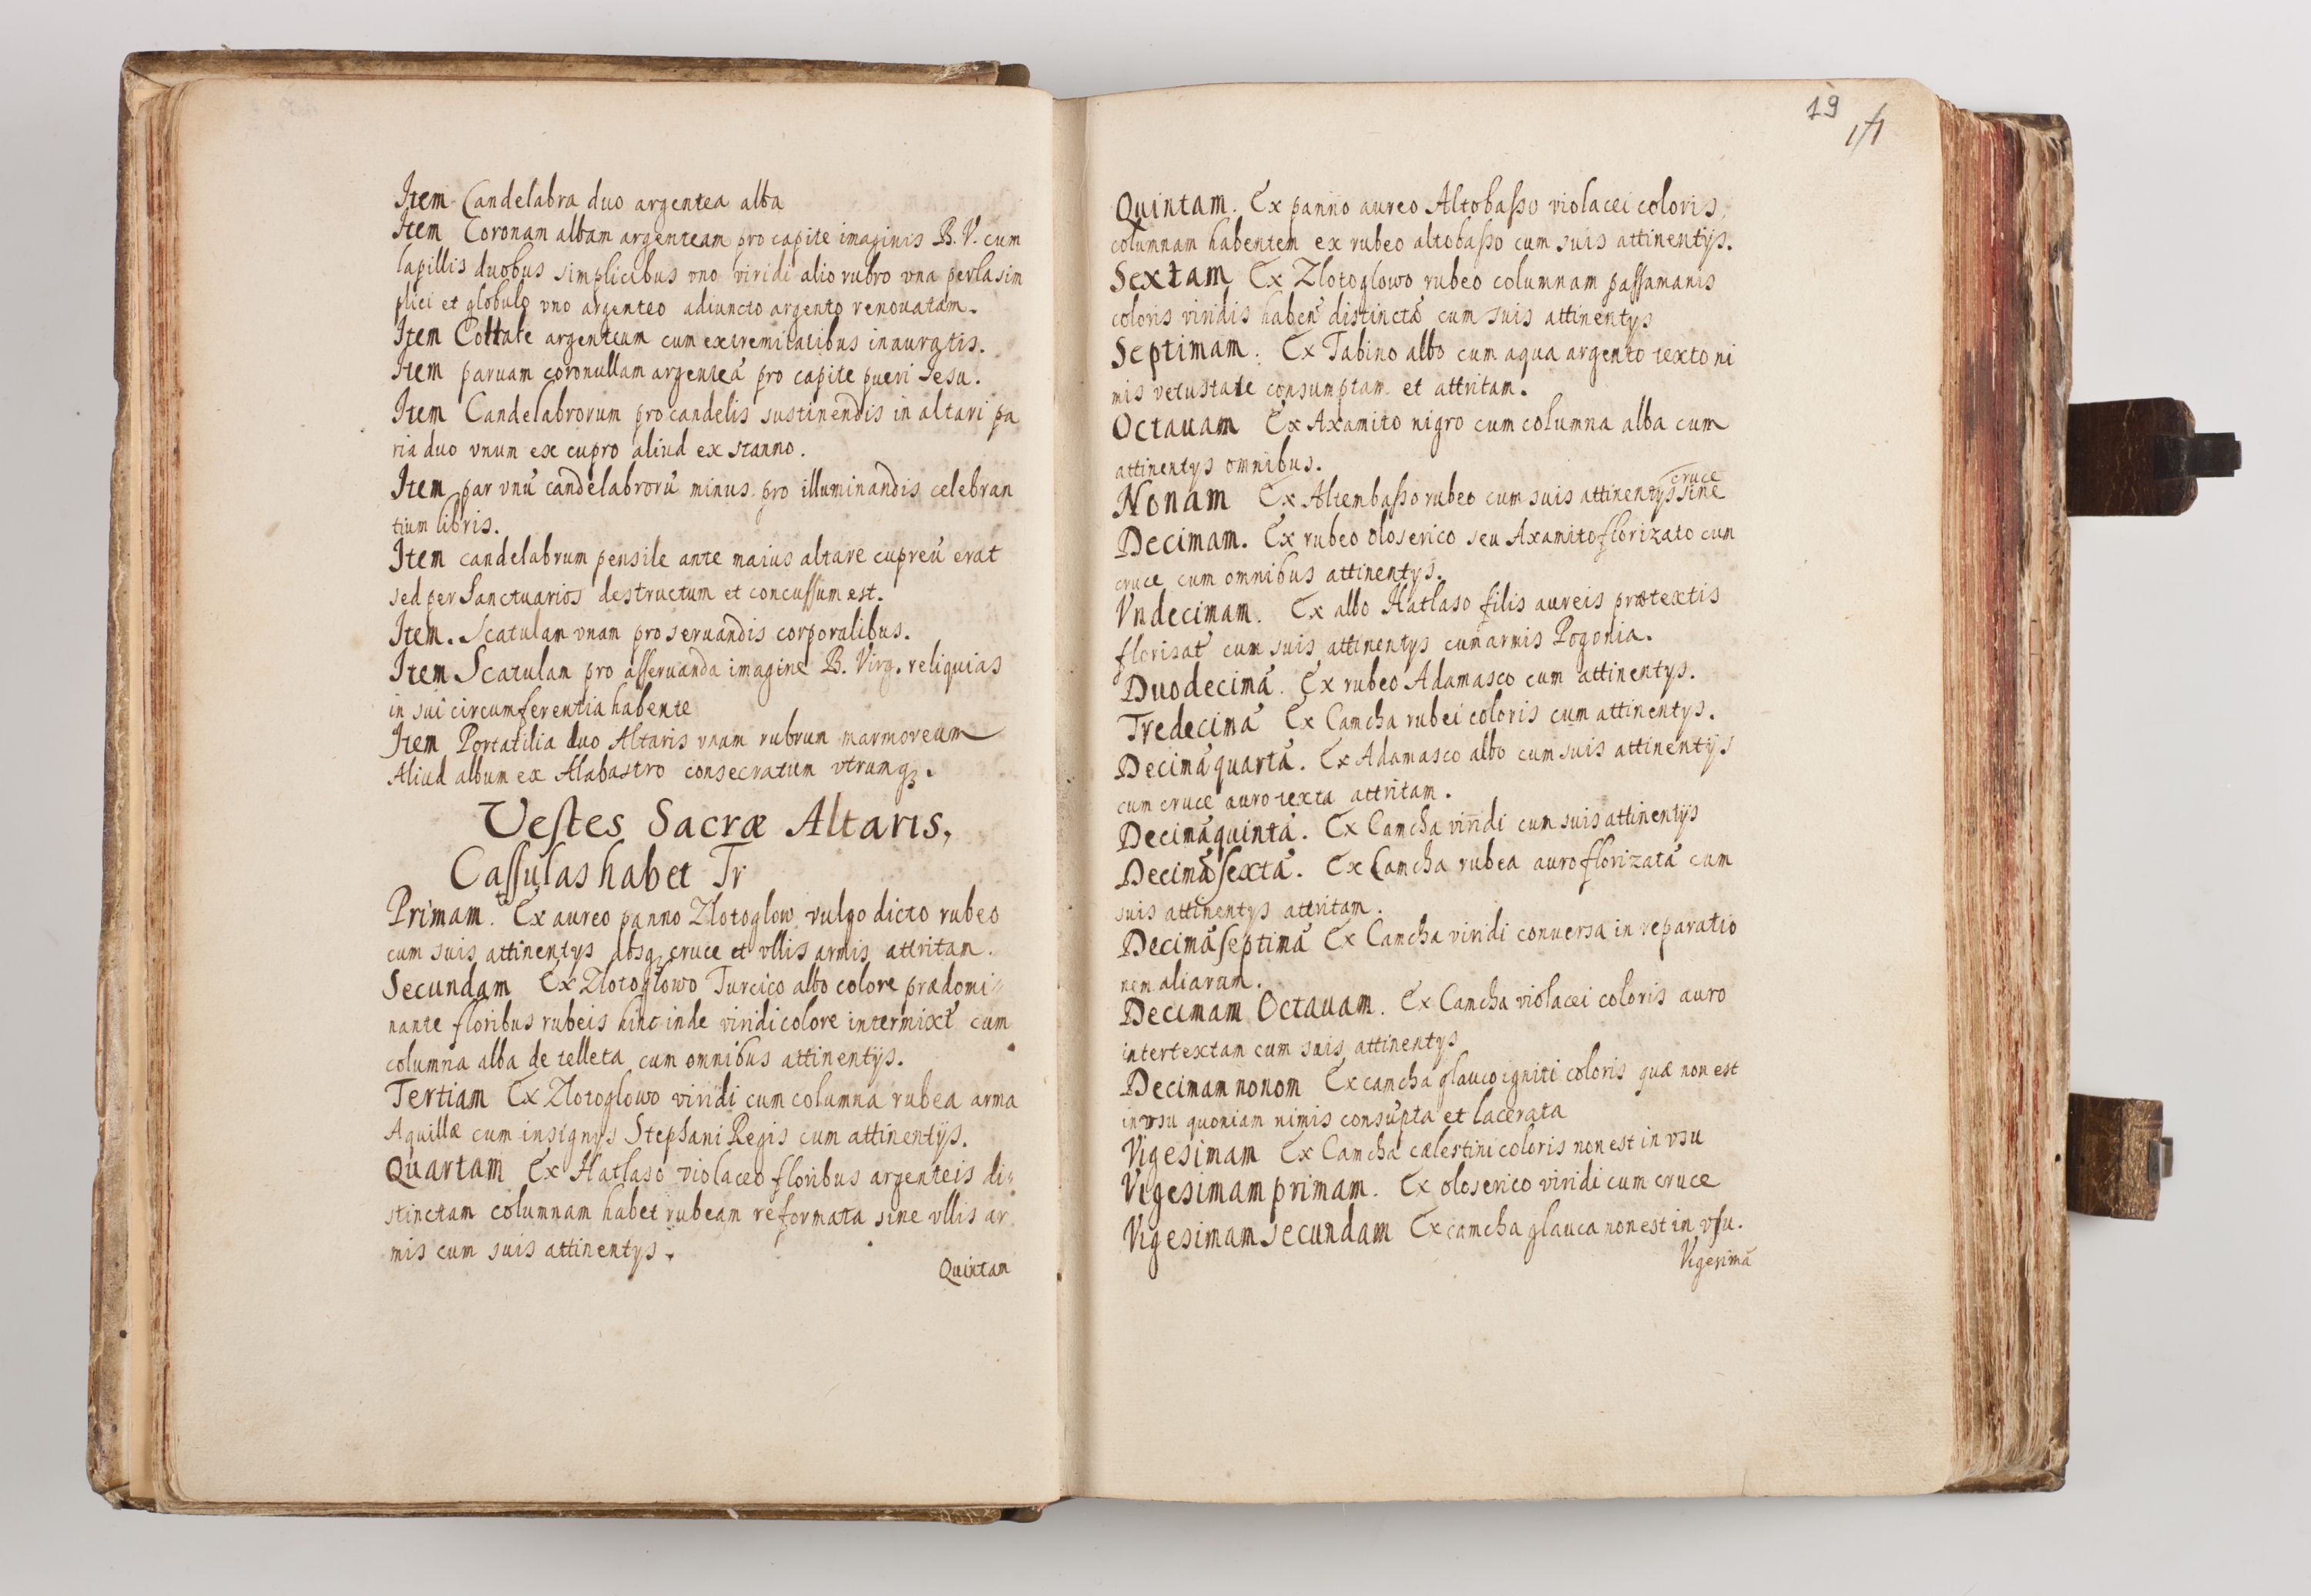 Item Candelabra duo argentea alba
Item Coronam albam argenteam pro capite imaginis B. V. cum
lapillis duobus simplicibus vno viridi alio rubro vna perla sim
plici et globulo vno argenteo adiuncto argento renouatam.
Item Collale argenteum cum extremitatibus inauratis.
Item paruam coronullam argenteā pro capite pueri Jesu.
Item Candelabrorum pro candelis sustinendis in altari pa
ria duo vnum ex cupro aliud ex stanno.
Item par vnū candelabrorū minus pro illuminandis celebran
tium libris.
Item candelabrum pensile ante maius altare cupreū erat
sed per Sanctuarios destructum et concussum est.
Item. Scatulam vnam pro seruandis corporalibus.
Item Scatulam pro asseruanda imagine B. Virg. reliquias
in sui circumferentia habente
Item Portatilia duo Altaris vnam rubrum marmoream
Aliud album ex Alabastro consecratum vtrumq;.
Vestes Sacræ Altaris,
Cassulas habet Tr
Primam. Ex aureo panno Zlotoglow vulgo dicto rubeo
cum suis attinentys absq; cruce et vllis armis attritam.
Secundam Ex Zlotoglowo Turcico albo colore prædomi=
nante floribus rubeis hinc inde viridi colore intermixt̄ cum
columna alba de telleta cum omnibus attinentijs.
Tertiam Ex Zlotoglowo viridi cum columna rubea arma
Aquillæ cum insignys Stephani Regis cum attinentijs.
Quartam Ex Hatlaso violaceo floribus argenteis di=
stinctam columnam habet rubeam reformata sine vllis ar
mis cum suis attinentys.
Quintam
19
Quintam. Ex panno aureo Altobasso violacei coloris,
columnam habentem ex rubeo altobasso cum suis attinentijs.
Sextam Ex Zlotoglowo rubeo columnam passamanis
coloris viridis habeñ distinctā cum suis attinentys
Septimam. Ex Tabino albo cum aqua argento texto ni
mis vetustate consumptam et attritam.
Octauam Ex Axamito nigro cum columna alba cum
attinentys omnibus.
Nonam Ex Altembasso rubeo cum suis attinentys sine cruce
Decimam. Ex rubeo oloserico seu Axamito florizato cum
cruce cum omnibus attinentys.
Vndecimam. Ex albo Hatlaso filis aureis prætextis
florisat̄ cum suis attinentys cum armis Pogonia.
Duodecimā. Ex rubeo Adamasco cum attinentys.
Tredecimā Ex Camcha rubei coloris cum attinentys.
Decimā quartā. Ex Adamasco albo cum suis attinentijs
cum cruce auro texta attritam.
Decimā quintā. Ex Camcha viridi cum suis attinentijs
Decimā sextā. Ex Camcha rubea auro florizatā cum
suis attinentys attritam.
Decimā septimā Ex Camcha viridi conuersa in reparatio
nem aliarum.
Decimam Octauam. Ex Camcha violacei coloris auro
intertextam cum suis attinentys
Decimam nonom Ex camcha glauco igniti coloris quæ non est
in vsu quoniam nimis consūpta et lacerata
Vigesimam Ex Camcha cælestini coloris non est in vsu
Vigesimam primam. Ex oloserico viridi cum cruce
Vigesimam secundam Ex camcha glauca non est in vsu.
Vigesimā